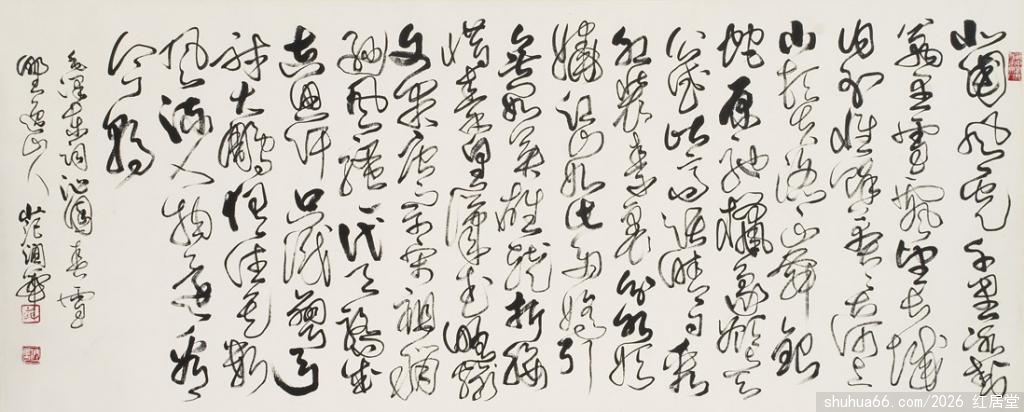 北國風光千里冰封
萬里雪飄望长城
内外惟馀莽莽大河上
下顿失滔滔山舞銀
蛇原驰蜡象欲與天
公试比高须晴日看
红装素裹分外妖
娆江山如此多娇引
無数英雄竞折腰
惜秦皇漢武略输
文采唐宗宋祖稍
逊風骚一代天骄成
吉思汗只识彎弓
射大雕俱往矣数
風流人物還看
今朝
毛泽东词沁園春雪
山人
shuhua66.com/2026 红居堂